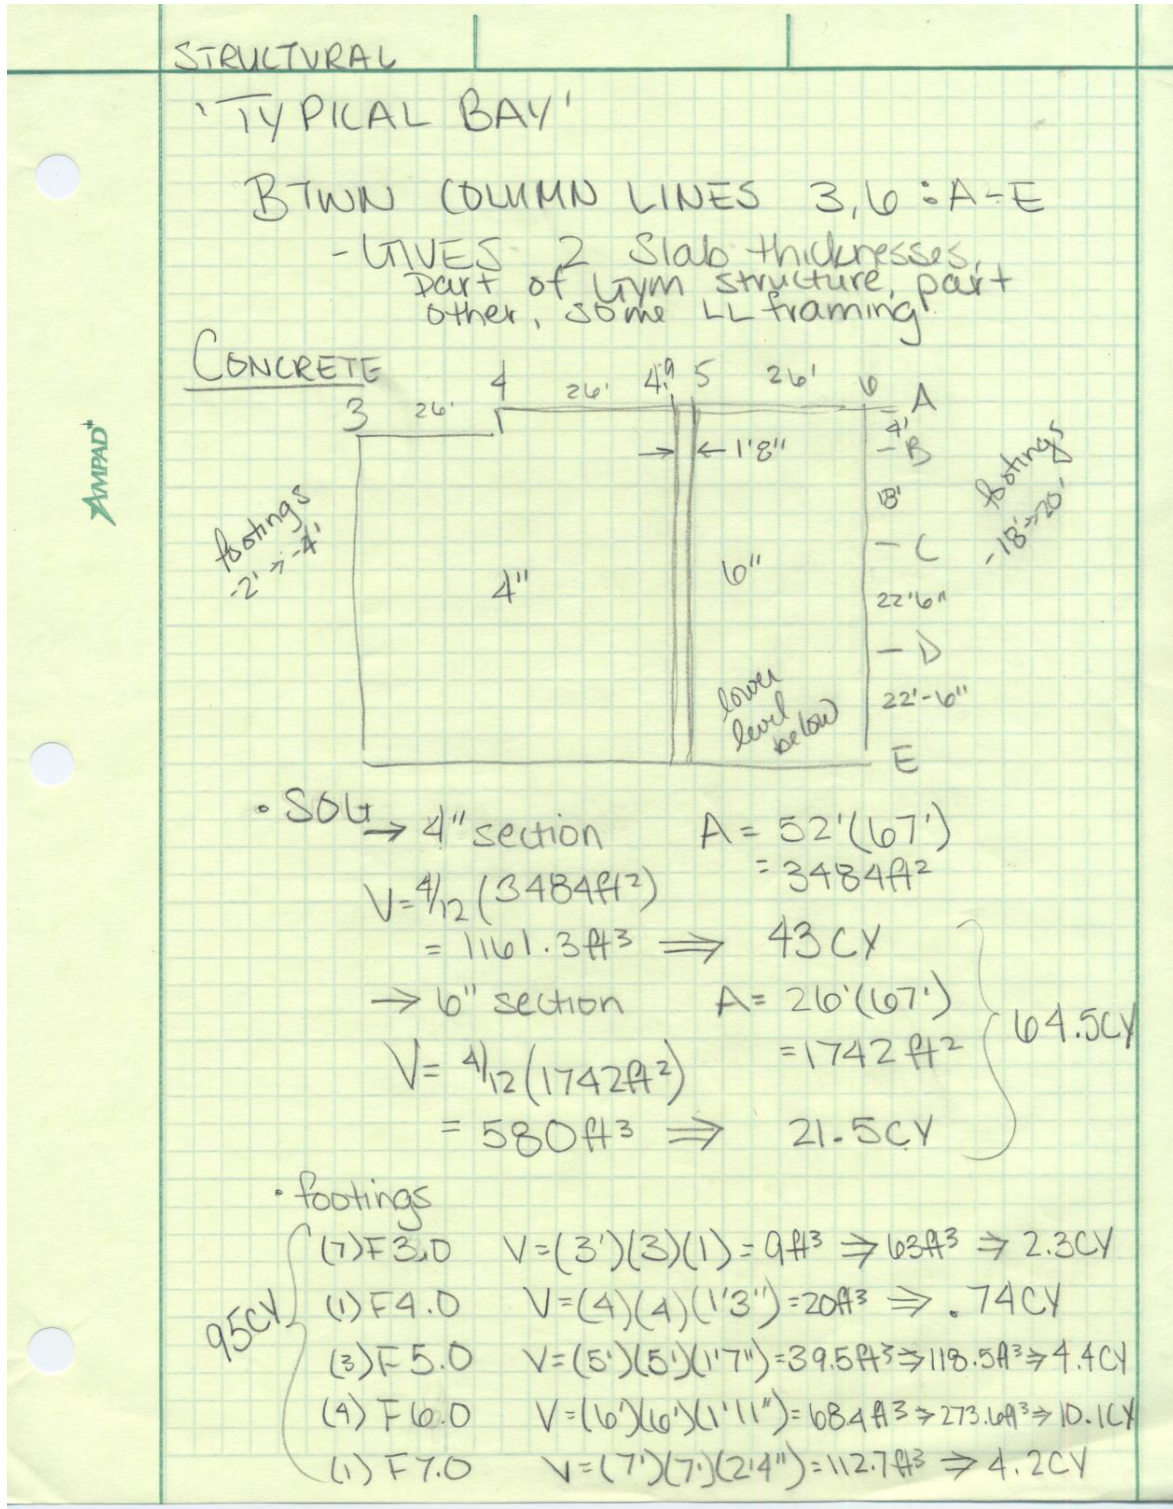 STRUCTURAL
'TYPICAL BAY'
BTWN COLUMN LINES 3,6 : A-E
- GIVES 2 Slab thicknesses,
part of Gym structure, part
other, some LL framing
CONCRETE
3 26' 4 26' 4.9 5 26' 6 A
4'
→ ← 1'8" - B
AMPAD
footings
-2' → -4'
4"
6"
18'
footings
-18' → 20'
- C
22'6"
- D
22'-6"
E
lower
level
below
• SOG → 4" section A = 52'(67')
= 3484ft²
V = 4/12 (3484ft²)
= 1161.3 ft³ ⇒ 43 CY
→ 6" section A = 26'(67')
= 1742 ft²
64.5CY
V = 4/12 (1742ft²)
= 580 ft³ ⇒ 21.5CY
• footings
(7) F3.0 V=(3')(3)(1) = 9ft³ ⇒ 63ft³ ⇒ 2.3CY
(1) F4.0 V=(4)(4)(1'3") = 20ft³ ⇒ .74CY
95CY
(3) F5.0 V=(5')(5')(1'7") = 39.5ft³ ⇒ 118.5ft³ ⇒ 4.4CY
(4) F6.0 V=(6')(6')(1'11") = 68.4ft³ ⇒ 273.6ft³ ⇒ 10.1CY
(1) F7.0 V=(7')(7')(2'4") = 112.7ft³ ⇒ 4.2CY